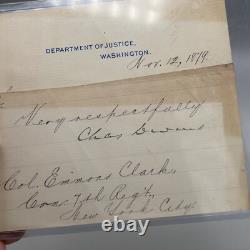 DEPARTMENT OF JUSTICE,
WASHINGTON.
Nov. 12, 1879.
Very respectfully
Chas Devens
Col. Emmons Clark,
Com'g 7th Reg't,
New York City.